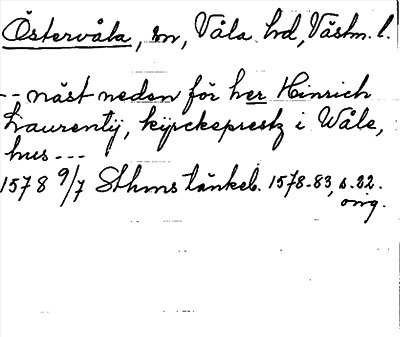 Östervåla, sn, Våla hd, Västm. l.
-- näst nedan för her Hinrich
Laurentij, kyrckeprestz i Wåle,
hus ---
1578 9/7 Sthms tänkeb. 1578-83, s. 22.
orig.